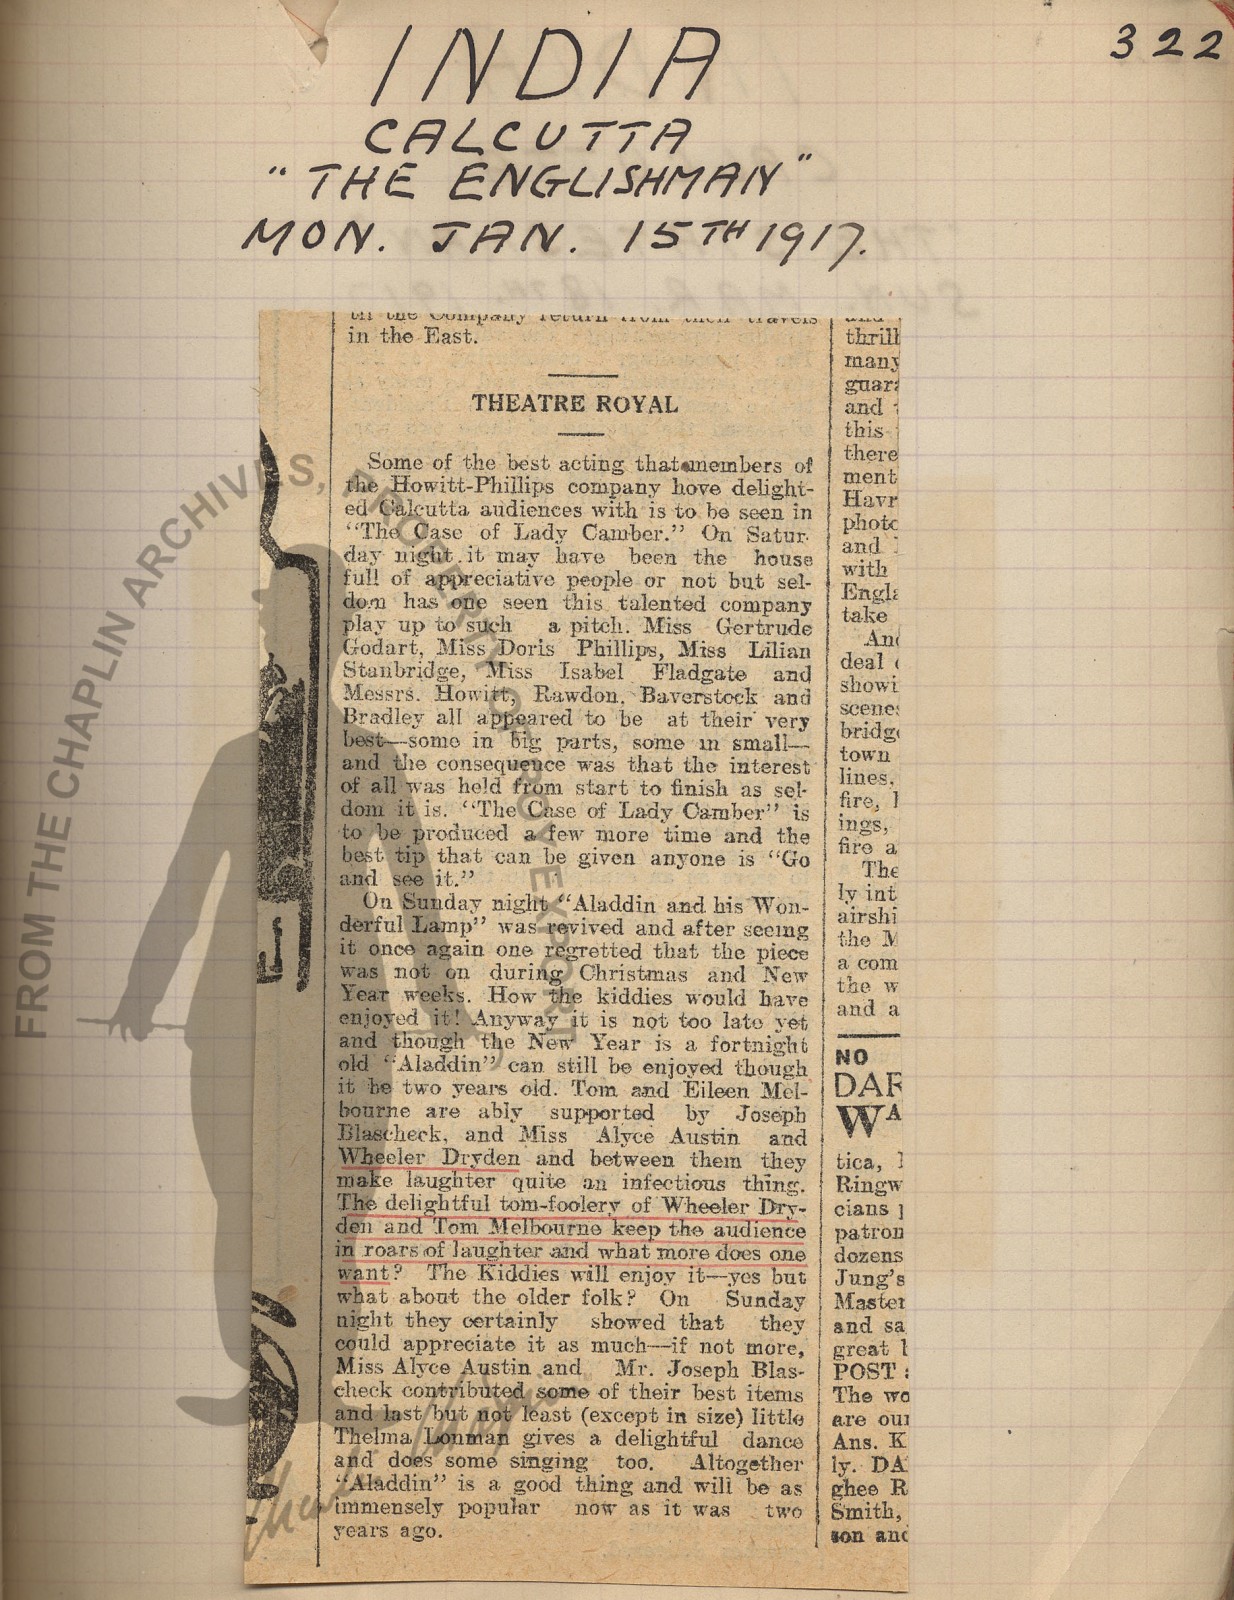 322
INDIA
CALCUTTA
"THE ENGLISHMAN"
MON. JAN. 15TH 1917.
til the Company return from their travels
in the East.
THEATRE ROYAL
Some of the best acting that members of
the Howitt-Phillips company hove delight-
ed Calcutta audiences with is to be seen in
"The Case of Lady Camber." On Satur-
day night it may have been the house
full of appreciative people or not but sel-
dom has one seen this talented company
play up to such a pitch. Miss Gertrude
Godart, Miss Doris Phillips, Miss Lilian
Stanbridge, Miss Isabel Fladgate and
Messrs. Howitt, Rawdon, Baverstock and
Bradley all appeared to be at their very
best—some in big parts, some in small—
and the consequence was that the interest
of all was held from start to finish as sel-
dom it is. "The Case of Lady Camber" is
to be produced a few more time and the
best tip that can be given anyone is "Go
and see it."
On Sunday night "Aladdin and his Won-
derful Lamp" was revived and after seeing
it once again one regretted that the piece
was not on during Christmas and New
Year weeks. How the kiddies would have
enjoyed it! Anyway it is not too late yet
and though the New Year is a fortnight
old "Aladdin" can still be enjoyed though
it be two years old. Tom and Eileen Mel-
bourne are ably supported by Joseph
Blascheck, and Miss Alyce Austin and
Wheeler Dryden and between them they
make laughter quite an infectious thing.
The delightful tom-foolery of Wheeler Dry-
den and Tom Melbourne keep the audience
in roars of laughter and what more does one
want? The Kiddies will enjoy it—yes but
what about the older folk? On Sunday
night they certainly showed that they
could appreciate it as much—if not more,
Miss Alyce Austin and Mr. Joseph Blas-
check contributed some of their best items
and last but not least (except in size) little
Thelma Lonman gives a delightful dance
and does some singing too. Altogether
"Aladdin" is a good thing and will be as
immensely popular now as it was two
years ago.
and
thrill
many
guar
and
this
there
ment
Havr
photo
and
with
Engla
take
And
deal
showi
scene
bridge
town
lines,
fire,
ings,
fire a
The
ly int
airshi
the M
a com
the w
and a
NO
DAR
WA
tica,
Ringw
cians
patron
dozens
Jung's
Master
and sa
great
POST
The wo
are our
Ans. K
ly. DA
ghee R
Smith,
son and
FROM THE CHAPLIN ARCHIVES, PROPERTY OF ROY EXPORT